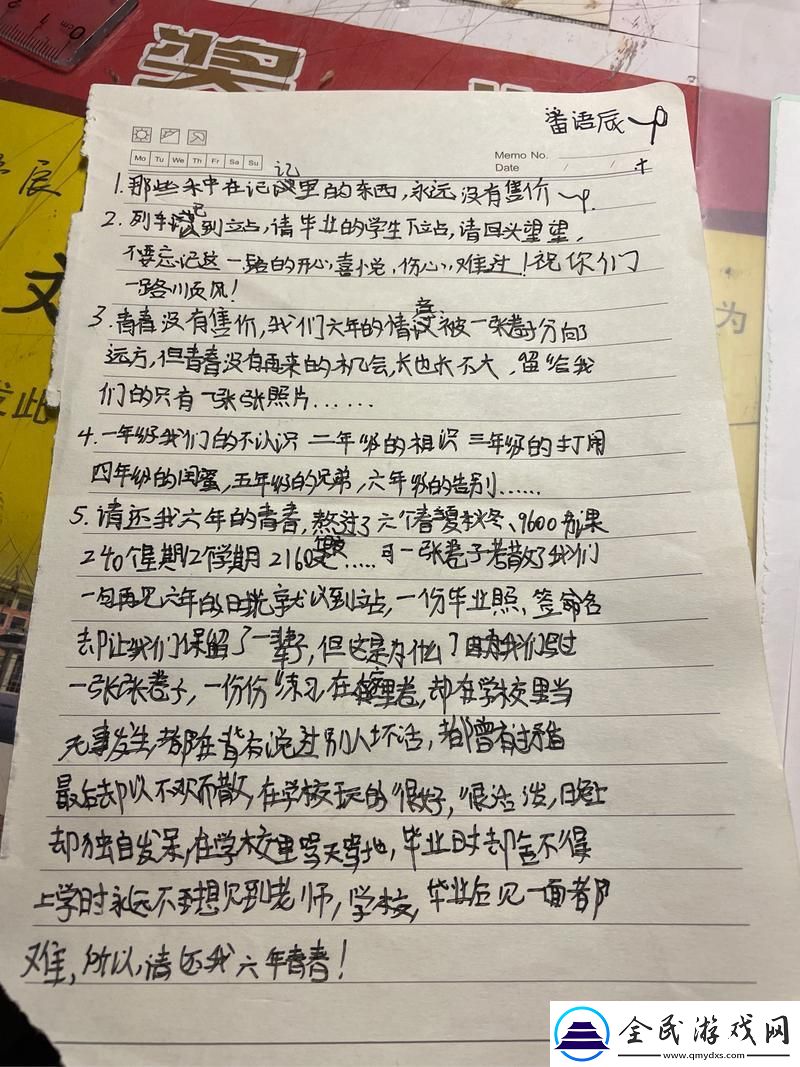 奖
潘语辰
Mo Tu We Th Fr Sa Su
Memo No.
Date / /
记
1. 那些年中在记里的东西,永远没有售价
2. 列车已到立占,请毕业的学生下立占,请回头望望,
不要忘记这一路的开心,喜悦,伤心,难过!祝你们
一路川页风!
3. 青春没有售价,我们六年的情被一张卷子分向
远方,但青春没有再来的机会,长也长不大,留给我
们的只有一张张照片……
4. 一年级我们的不认识 二年级的相识 三年级的打闹
四年级的闺蜜,五年级的兄弟,六年级的告别……
5. 请还我六年的青春,熬过了六个春夏秋冬、9600节课
240个星期12个学期 2160……一张卷子考散了我们
一句再见六年的时光就到立占,一份毕业照,签命名
却让我们保留了一辈子,但这是为什么?因为我们写过
一张张卷子,一份份练习,在里卷,却在学校里当
无事发生,都在背后说过别人坏话,都曾有过矛盾
最后却以不欢而散,在学校玩的很好,很活泼,晚上
却独自发呆,在学校里骂天骂地,毕业时却舍不得
上学时永远不想见到老师,学校,毕业后见一面都
难,所以,请还我六年青春!
文
发此
为
全民游戏网
www.qmydxs.com